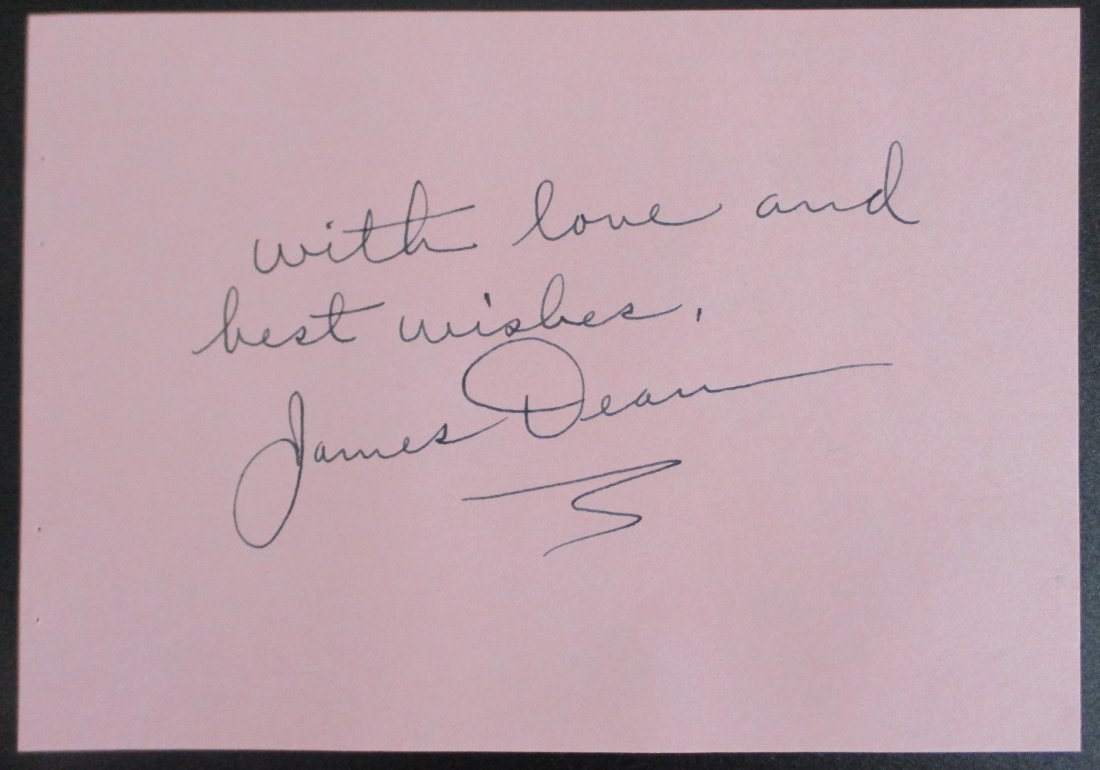 with love and
best wishes,
James Dean